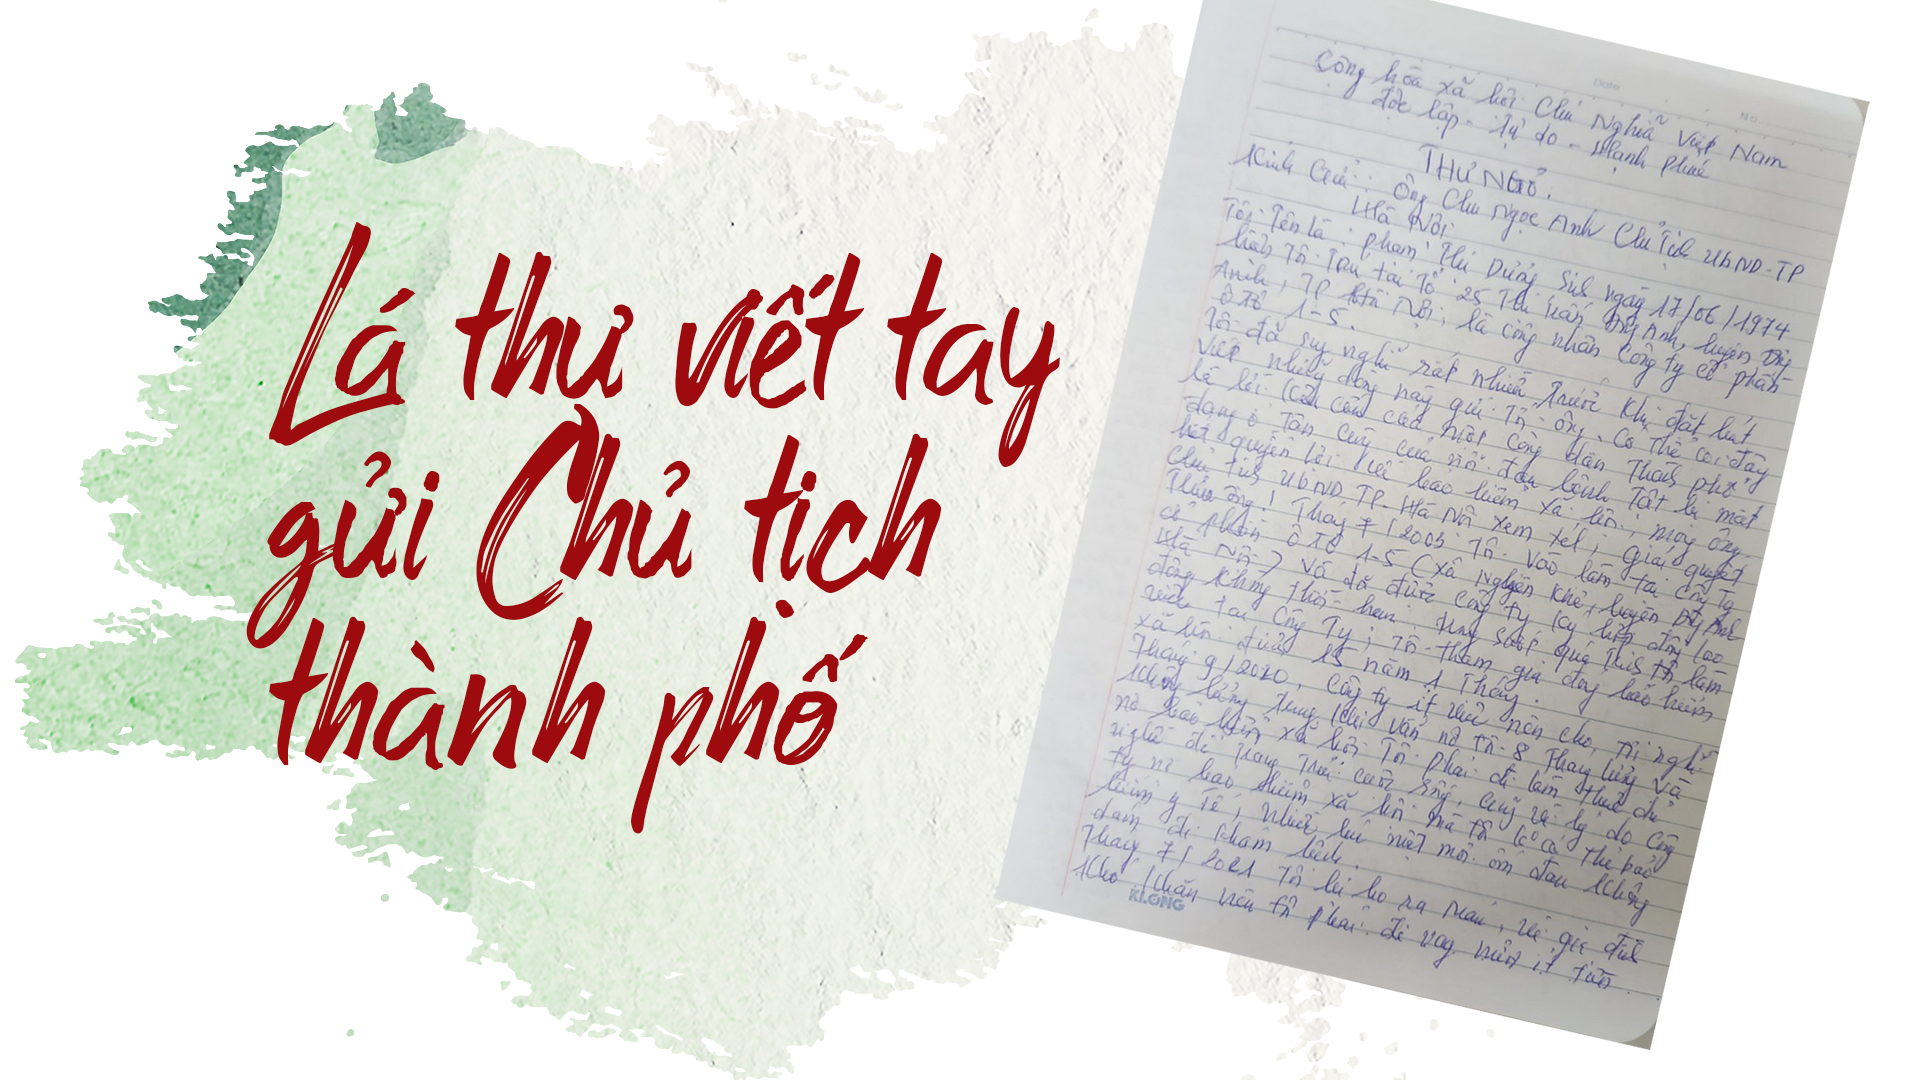 Lá thư viết tay
gửi Chủ tịch
thành phố
Date
No
Cộng hòa xã hội Chủ Nghĩa Việt Nam
độc lập - Tự do - Hạnh phúc
THƯ NGỎ.
Kính Gửi: Ông Chu Ngọc Anh Chủ Tịch UBND-TP
Hà Nội
Tôi Tên là: phạm Thị Dung Sinh ngày 17/06/1974
hiện Tôi Trú tại Tổ 25 Thị Trấn Đông Anh, huyện Đông
Anh, TP Hà Nội, là công nhân Công Ty cổ phần
ô tô 1-5.
Tôi đã suy nghĩ rất nhiều Trước khi đặt bút
viết những dòng này gửi Tới ông. Có Thể coi đây
là lời cầu cứu của một Công dân Thành phố
đang ở Tận cùng của nỗi đau bệnh Tật bị mất
hết quyền lợi về bảo hiểm xã hội, mong ông
Chủ tịch UBND.TP-Hà Nội xem xét, giải quyết
Thưa ông! Tháng 7/2005 Tôi vào làm tại Công Ty
cổ phần ô tô 1-5 (xã Nguyên Khê, huyện Đông Anh
Hà Nội) và đã được Công Ty ký hợp đồng lao
động không Thời hạn. Trong suốt quá Trình Tôi làm
việc tại Công Ty, Tôi Tham gia đóng bảo hiểm
xã hội được 15 năm 1 Tháng.
Tháng 9/2020, Công ty ít việc nên cho Tôi nghỉ
không lương Trong khi vẫn nợ Tôi 8 Tháng lương và
nợ bảo hiểm xã hội Tôi phải đi làm Thuê đủ
nghề để Trang Trải cuộc sống, cũng vì lý do Công
Ty nợ bảo hiểm xã hội mà Tôi có Thẻ bảo
hiểm y Tế, nhiều lúc mệt mỏi ốm đau không
dám đi khám bệnh.
Tháng 7/2021 Tôi bị ho ra máu, vì gia đình
khó khăn nên Tôi phải đi vay mượn ít tiền
KLONG